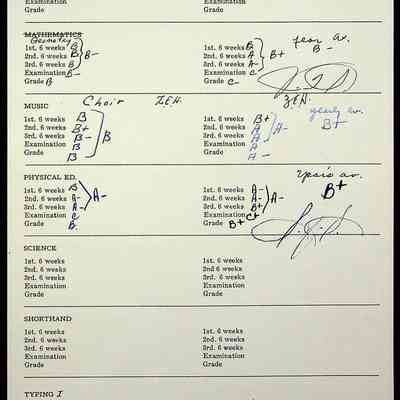 Examination Examination
Grade Grade
MATHEMATICS
Geometry year av.
1st. 6 weeks B 1st. 6 weeks B B-
2nd. 6 weeks B B- 2nd. 6 weeks A B+
3rd. 6 weeks B 3rd. 6 weeks B-
Examination B- Examination C-
Grade B Grade C-
MUSIC Choir Z.E.H. Z.E.H.
1st. 6 weeks B 1st. 6 weeks B+ yearly av.
2nd. 6 weeks B+ 2nd. 6 weeks A B+
3rd. 6 weeks B- B 3rd. 6 weeks A A-
Examination B Examination A
Grade B Grade A-
PHYSICAL ED. av.
1st. 6 weeks B 1st. 6 weeks A- B+
2nd. 6 weeks A- A- 2nd. 6 weeks A- A-
3rd. 6 weeks A- 3rd. 6 weeks B+
Examination C Examination C+
Grade B. Grade B+
SCIENCE
1st. 6 weeks 1st. 6 weeks
2nd. 6 weeks 2nd 6 weeks
3rd. 6 weeks 3rd. 6 weeks
Examination Examination
Grade Grade
SHORTHAND
1st. 6 weeks 1st. 6 weeks
2nd. 6 weeks 2nd. 6 weeks
3rd. 6 weeks 3rd. 6 weeks
Examination Examination
Grade Grade
TYPING I